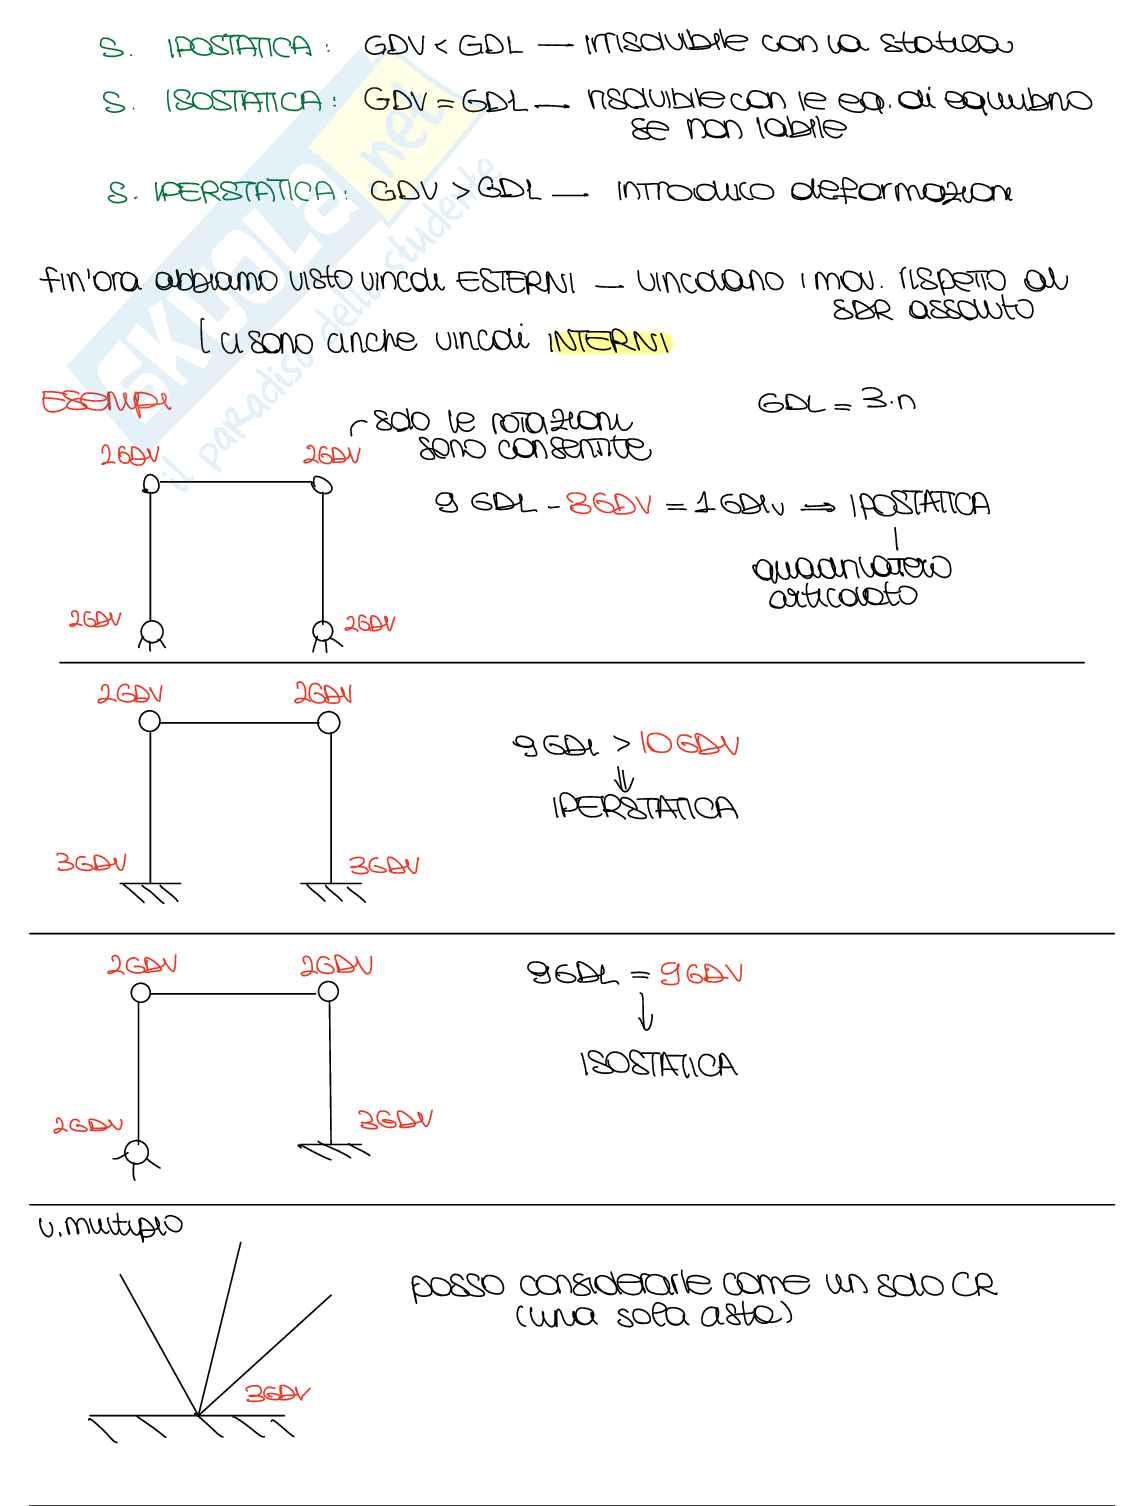 S. IPOSTATICA: GDV < GDL — irrisolvibile con la statica
S. ISOSTATICA: GDV = GDL — risolvibile con le eq. di equilibrio
se non labile
S. IPERSTATICA: GDV > GDL — introduco deformazioni
fin'ora abbiamo visto vincoli ESTERNI — vincolano i mov. rispetto al
SDR assoluto
ci sono anche vincoli INTERNI
Esempi
GDL = 3·n
solo le rotazioni
sono consentite
2GDV 2GDV
9 GDL - 8GDV = 1GDLv ⇒ IPOSTATICA
quadrilatero
articolato
2GDV 2GDV
2GDV 2GDV
9GDL > 10GDV
⇓
IPERSTATICA
3GDV 3GDV
2GDV 2GDV
9GDL = 9GDV
↓
ISOSTATICA
2GDV 3GDV
v. multiplo
posso considerarle come un solo CR
(una sola asta)
3GDV
SKUOLA.net
il paradiso dello studente